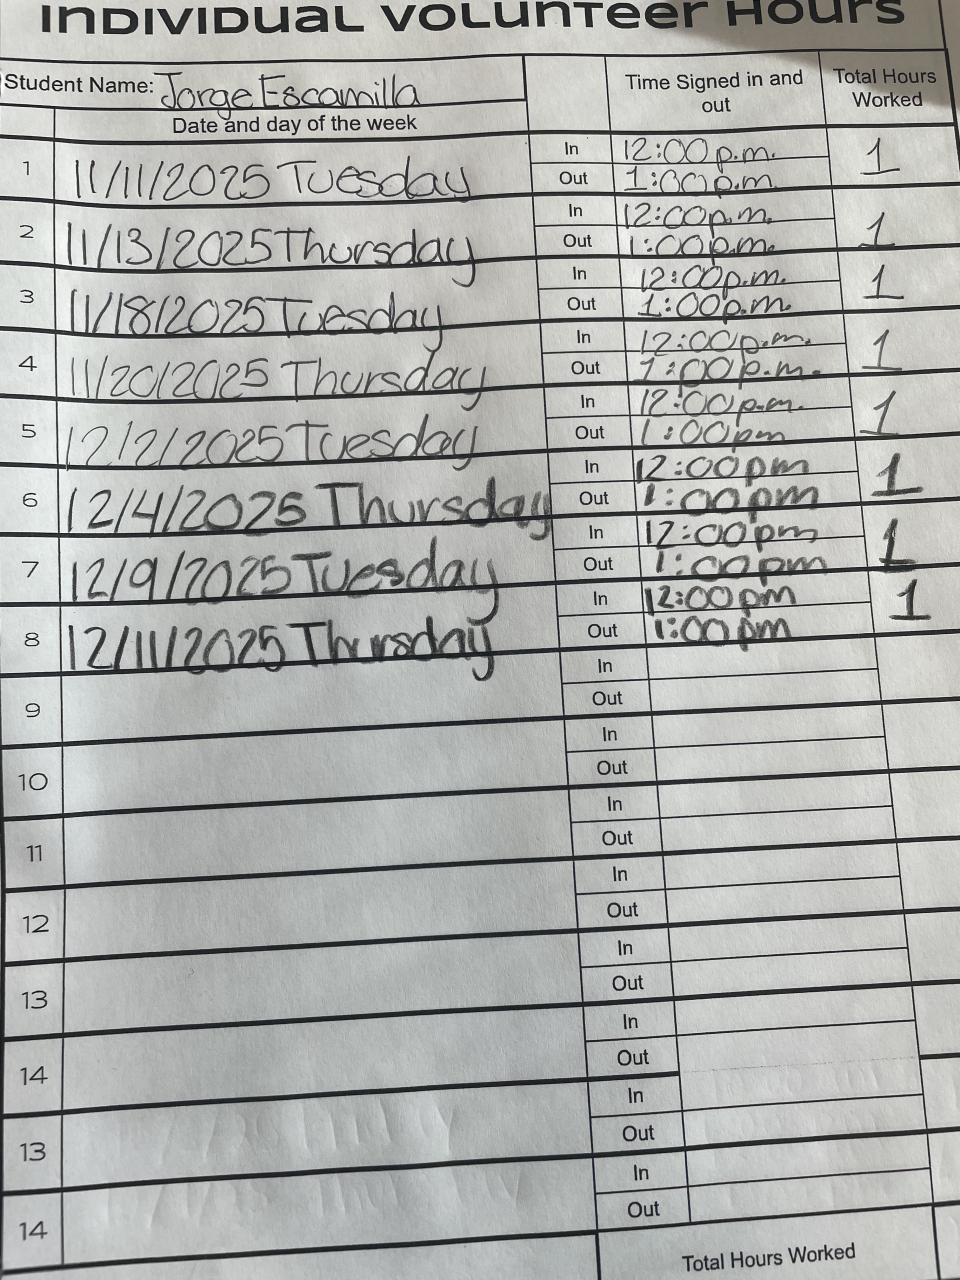 INDIVIDUAL VOLUNTEER HOURS
Student Name: Jorge Escamilla
Date and day of the week
Time Signed in and out
Total Hours Worked
1 11/11/2025 Tuesday In 12:00p.m. 1
Out 1:00p.m.
2 11/13/2025 Thursday In 12:00p.m. 1
Out 1:00p.m.
3 11/18/2025 Tuesday In 12:00p.m. 1
Out 1:00p.m.
4 11/20/2025 Thursday In 12:00p.m. 1
Out 1:00p.m.
5 12/2/2025 Tuesday In 12:00p.m. 1
Out 1:00pm
6 12/4/2025 Thursday In 12:00pm 1
Out 1:00pm
7 12/9/2025 Tuesday In 12:00pm 1
Out 1:00pm
8 12/11/2025 Thursday In 12:00pm 1
Out 1:00pm
9 In
Out
10 In
Out
11 In
Out
12 In
Out
13 In
Out
14 In
Out
13 In
Out
14 In
Out
Total Hours Worked